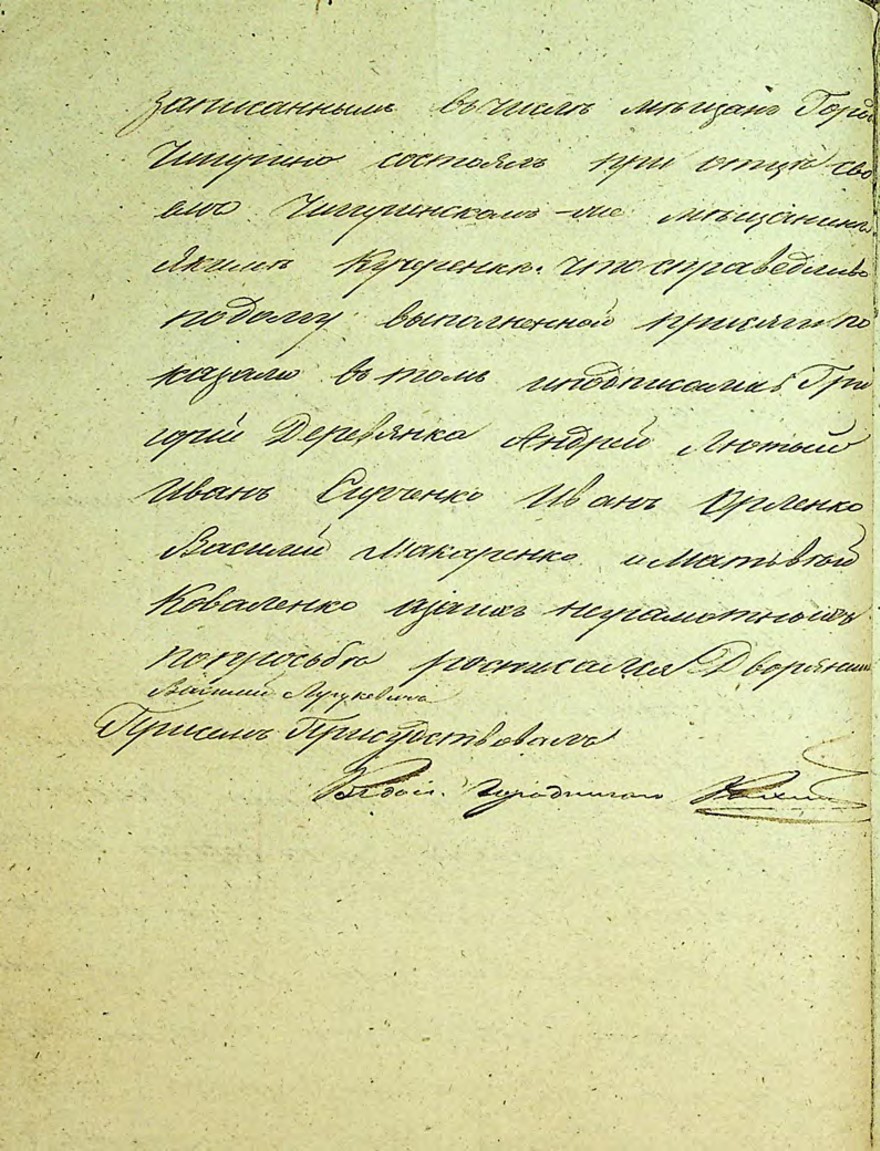 записанныхъ въ числѣ мѣщанъ Горо
Чигирина состоялъ при отцѣ сво
емъ Чигиринскомъ-же мѣщанинѣ
Якимѣ Кучеренкѣ. что справедливо
подолгу выполненной присяги по
казали въ томъ иподписались Гри
горій Деревянко Андрей Лютый
Иванъ Сирченко Иванъ Орленко
Василий Макаренко иМатьвѣй
Коваленко азаихъ неграмотныхъ
попросьбѣ росписался Дворянинъ
Василий
При семъ Присудствовалъ
Городничаго